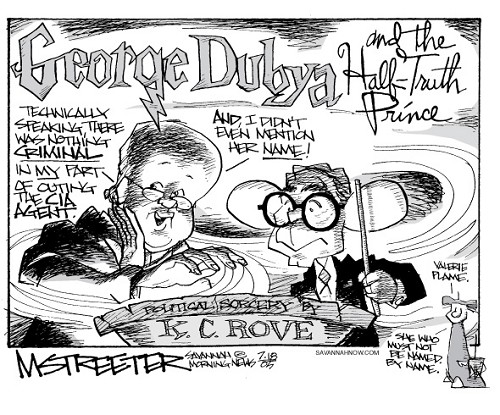 George Dubya
and the
Half-Truth
Prince
TECHNICALLY
SPEAKING, THERE
WAS NOTHING
CRIMINAL
IN MY PART
OF OUTING
THE CIA
AGENT.
AND, I DIDN'T
EVEN MENTION
HER NAME!
POLITICAL SORCERY BY
K. C. ROVE
VALERIE
PLAME.
SHE WHO
MUST NOT
BE NAMED.
BY NAME.
M STREETER
SAVANNAH
MORNING NEWS
©
7.18
05
SAVANNAHNOW.COM